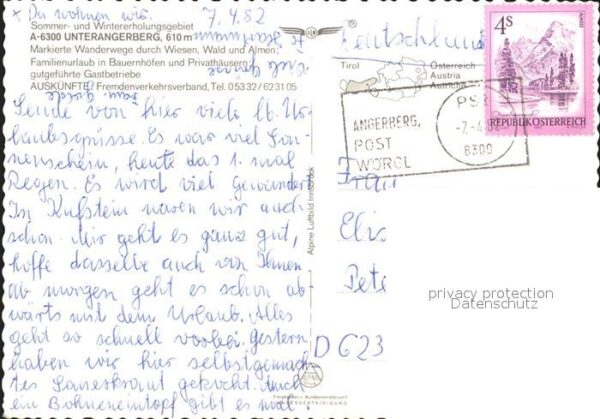 * Da wohnen wir. 7.4.82
Sommer- und Wintererholungsgebiet
A-6300 UNTERANGERBERG, 610 m
Markierte Wanderwege durch Wiesen, Wald und Almen;
Familienurlaub in Bauernhöfen und Privathäusern;
gutgeführte Gastbetriebe
AUSKÜNFTE: Fremdenverkehrsverband, Tel. 0 53 32/6 23 10 5
Sende von hier viele lb. Ur-
laubsgrüsse. Es war viel Son-
nenschein, heute das 1. mal
Regen. Es wird viel gewandert
In Kufstein waren wir auch
schon. Mir geht es ganz gut,
hoffe dasselbe auch von Ihnen
ab morgen geht es schon ab-
wärts mit dem Urlaub. Alles
geht so schnell vorbei. Gestern
haben wir hier selbstgemach-
tes Sauerkraut gekocht. Auch
ein Bohneneintopf gibt es mal
Alpine Luftbild Innsbruck
Deutschland
Tirol
Österreich
Austria
Autriche
4S
REPUBLIK ÖSTERREICH
ANGERBERG,
POST
WÖRGL
-7.-4.
6300
Frau
Elis
Pete
D 623
privacy protection
Datenschutz